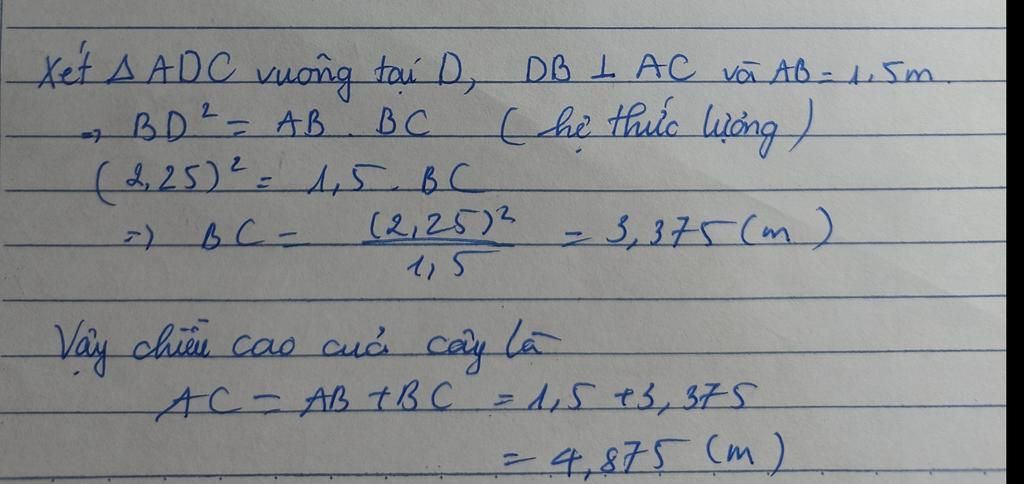 Xét Δ ADC vuông tại D, DB ⊥ AC và AB = 1,5m.
=> BD² = AB . BC (hệ thức lượng)
(2,25)² = 1,5 . BC
=> BC = (2,25)² / 1,5 = 3,375 (m)
Vậy chiều cao của cây là
AC = AB + BC = 1,5 + 3,375
= 4,875 (m)